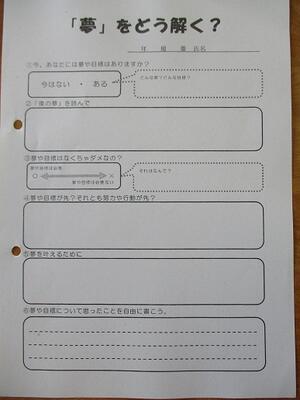 「夢」をどう解く？
年　組　番　氏名
①今、あなたには夢や目標はありますか？
今はない　・　ある
どんな夢？どんな目標？
②「僕の夢」を読んで
③夢や目標はなくちゃダメなの？
夢や目標は必要
○
×
夢や目標は必要ない
それはなんで？
④夢や目標が先？それとも努力や行動が先？
⑤夢を叶えるために
⑥夢や目標について思ったことを自由に書こう。